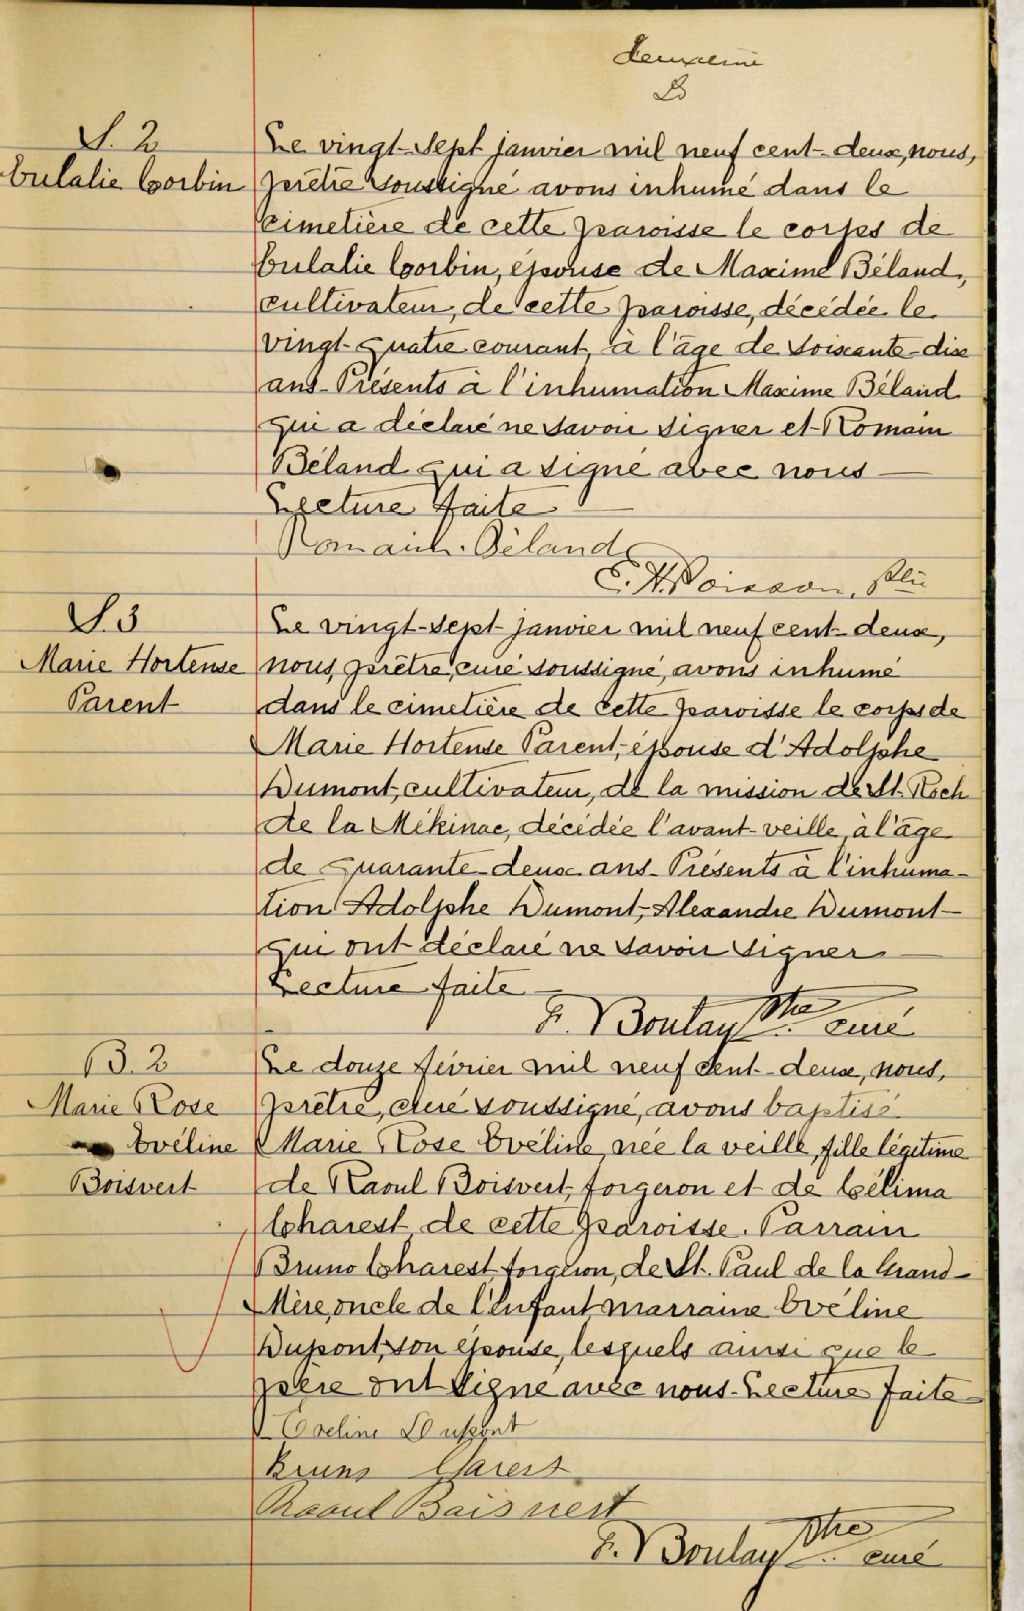 deuxième
S. 2
Eulalie Corbin
Le vingt-sept janvier mil neuf cent-deux, nous,
prêtre soussigné avons inhumé dans le
cimetière de cette paroisse le corps de
Eulalie Corbin, épouse de Maxime Béland,
cultivateur, de cette paroisse, décédée le
vingt-quatre courant, à l'âge de soixante-dix
ans. Présents à l'inhumation Maxime Béland
qui a déclaré ne savoir signer et Romain
Béland qui a signé avec nous —
Lecture faite —
Romain Béland
E. H. Poisson, Ptre
S. 3
Marie Hortense
Parent
Le vingt-sept janvier mil neuf cent-deux,
nous, prêtre, curé soussigné, avons inhumé
dans le cimetière de cette paroisse le corps de
Marie Hortense Parent, épouse d'Adolphe
Dumont, cultivateur, de la mission de St. Roch
de la Mékinac, décédée l'avant-veille, à l'âge
de quarante-deux ans. Présents à l'inhuma-
tion Adolphe Dumont, Alexandre Dumont —
qui ont déclaré ne savoir signer —
Lecture faite —
F. Boulay Ptre curé
B. 2
Marie Rose
Evéline
Boisvert
Le douze février mil neuf cent-deux, nous,
prêtre, curé soussigné, avons baptisé
Marie Rose Evéline, née la veille, fille légitime
de Raoul Boisvert, forgeron et de Célima
Charest, de cette paroisse. Parrain
Bruno Charest, forgeron, de St. Paul de la Grand-
Mère, oncle de l'enfant, marraine Evéline
Dupont, son épouse, lesquels ainsi que le
père ont signé avec nous. Lecture faite —
Eveline Dupont
Bruno Charest
Raoul Boisvert
F. Boulay Ptre curé